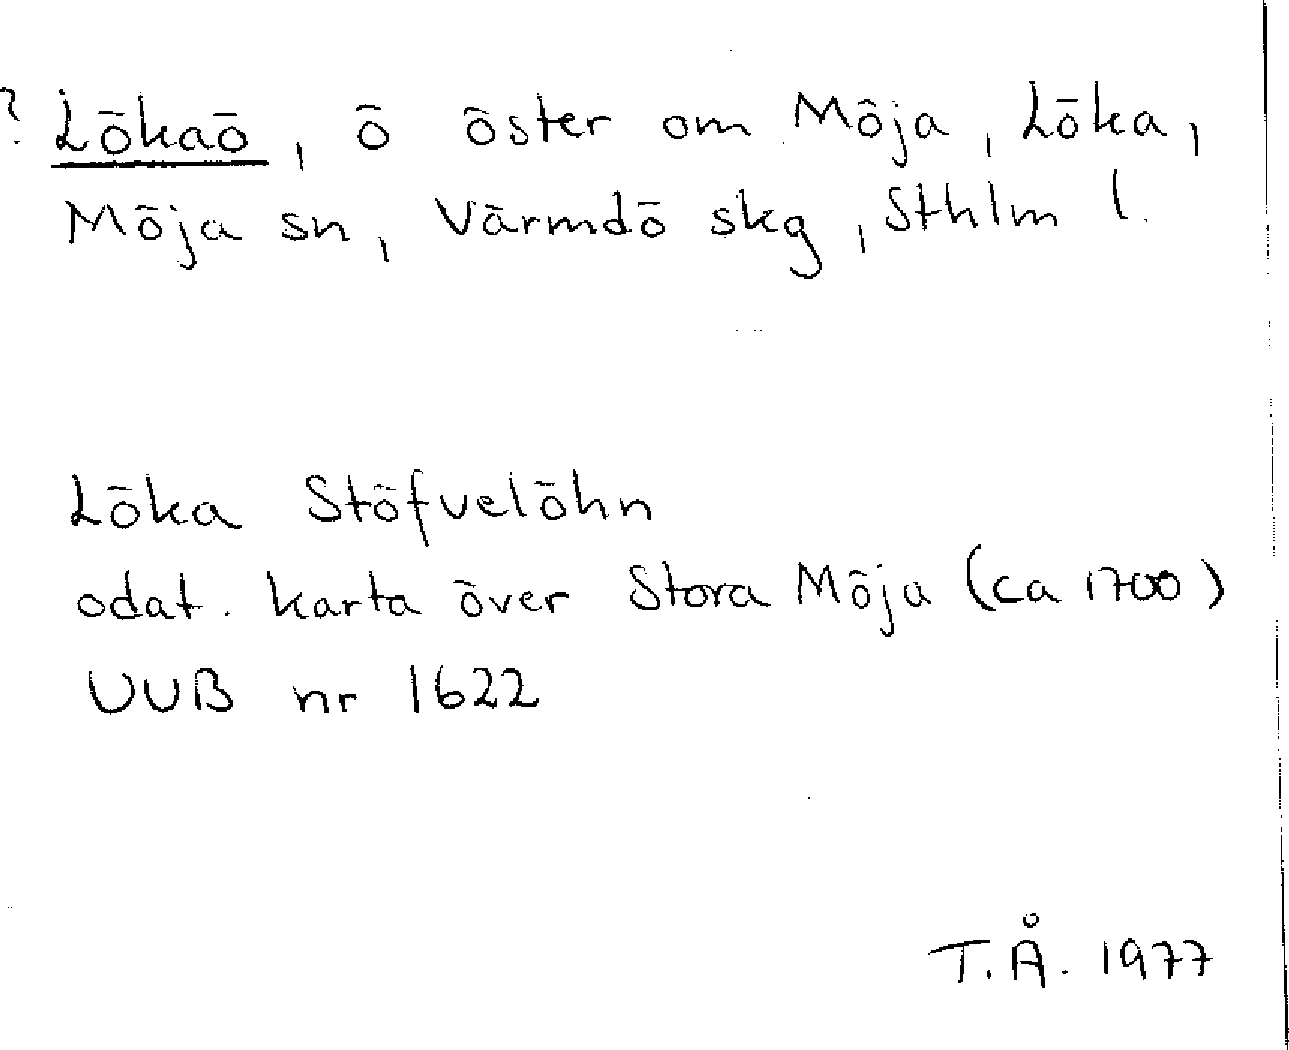 ? Lökaö, ö öster om Möja, Löka,
Möja sn, Värmdö skg, Sthlm l.
Löka Stöfvelöhn
odat. karta över Stora Möja (ca 1700)
UUB nr 1622
T.Å. 1977